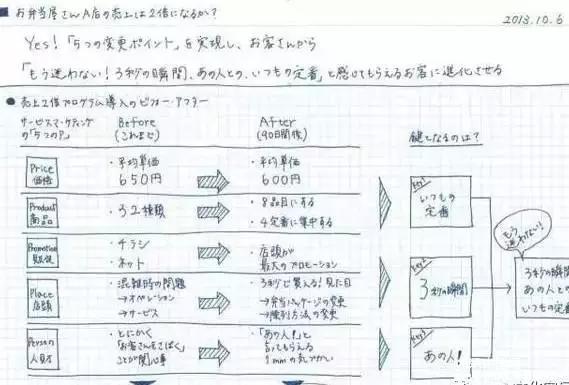 お弁当屋さんA店の売上は2倍になるか？
2013.10.6
Yes！「5つの変更ポイント」を実現し、お客さんから
「もう迷わない！3秒の瞬間、あの人との、いつもの定番」と感じてもらえるお客に進化させる
● 売上2倍プログラム導入のビフォー・アフター
サービスマーケティングの「5つのP」
Before（これまで）
After（90日間後）
鍵となるのは？
Price 価格
・平均単価 650円
・平均単価 600円
Product 商品
・32種類
・8品目にする
4定番に集中する
Promotion 販促
・チラシ
・ネット
・店頭が
最大のプロモーション
Place 店頭
・混雑時の問題
→オペレーション
→サービス
・3秒で買える！見た目
→弁当パッケージの変更
→陳列方法の変更
Person 人財
・とにかく
「お客さんをさばく」
ことが関心事
・「あの人！」と
言ってもらえる
1mmの気づかい
Key1
いつもの定番
Key2
3秒の瞬間
Key3
あの人！
もう迷わない！
3秒の瞬間
あの人との
いつもの定番